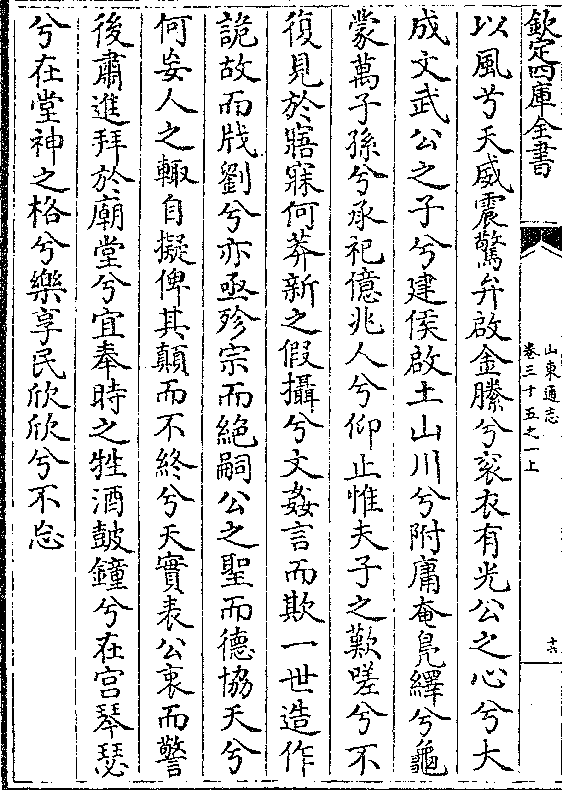 欽定四庫全書
山東通志
卷三十五之一上
十六
以風兮天威震驚弁啟金縢兮衮衣有光公之心兮大
成文武公之子兮建侯啟土山川兮附庸奄鳧繹兮龜
蒙萬子孫兮承祀億兆人兮仰止惟夫子之歎嗟兮不
復見於寤寐何莽新之假攝兮文姦言而欺一世造作
詭故而戕劉兮亦亟殄宗而絶嗣公之聖而德協天兮
何妄人之輙自擬俾其顛而不終兮天實表公衷而警
後肅進拜於廟堂兮宜奉時之牲酒鼓鐘兮在宫琴瑟
兮在堂神之格兮樂享民欣欣兮不忘